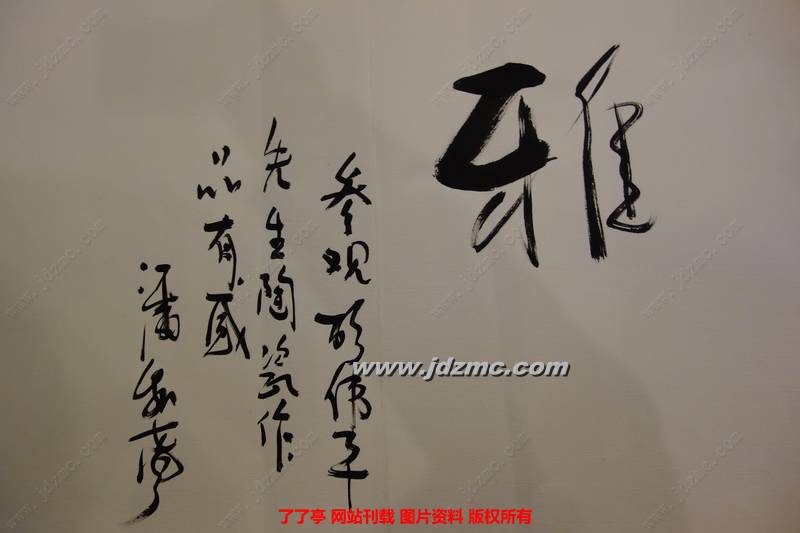 雅
参观 伟平
先生陶瓷作
品有感
潘
www.jdzmc.com
了了亭 网站刊载 图片资料 版权所有